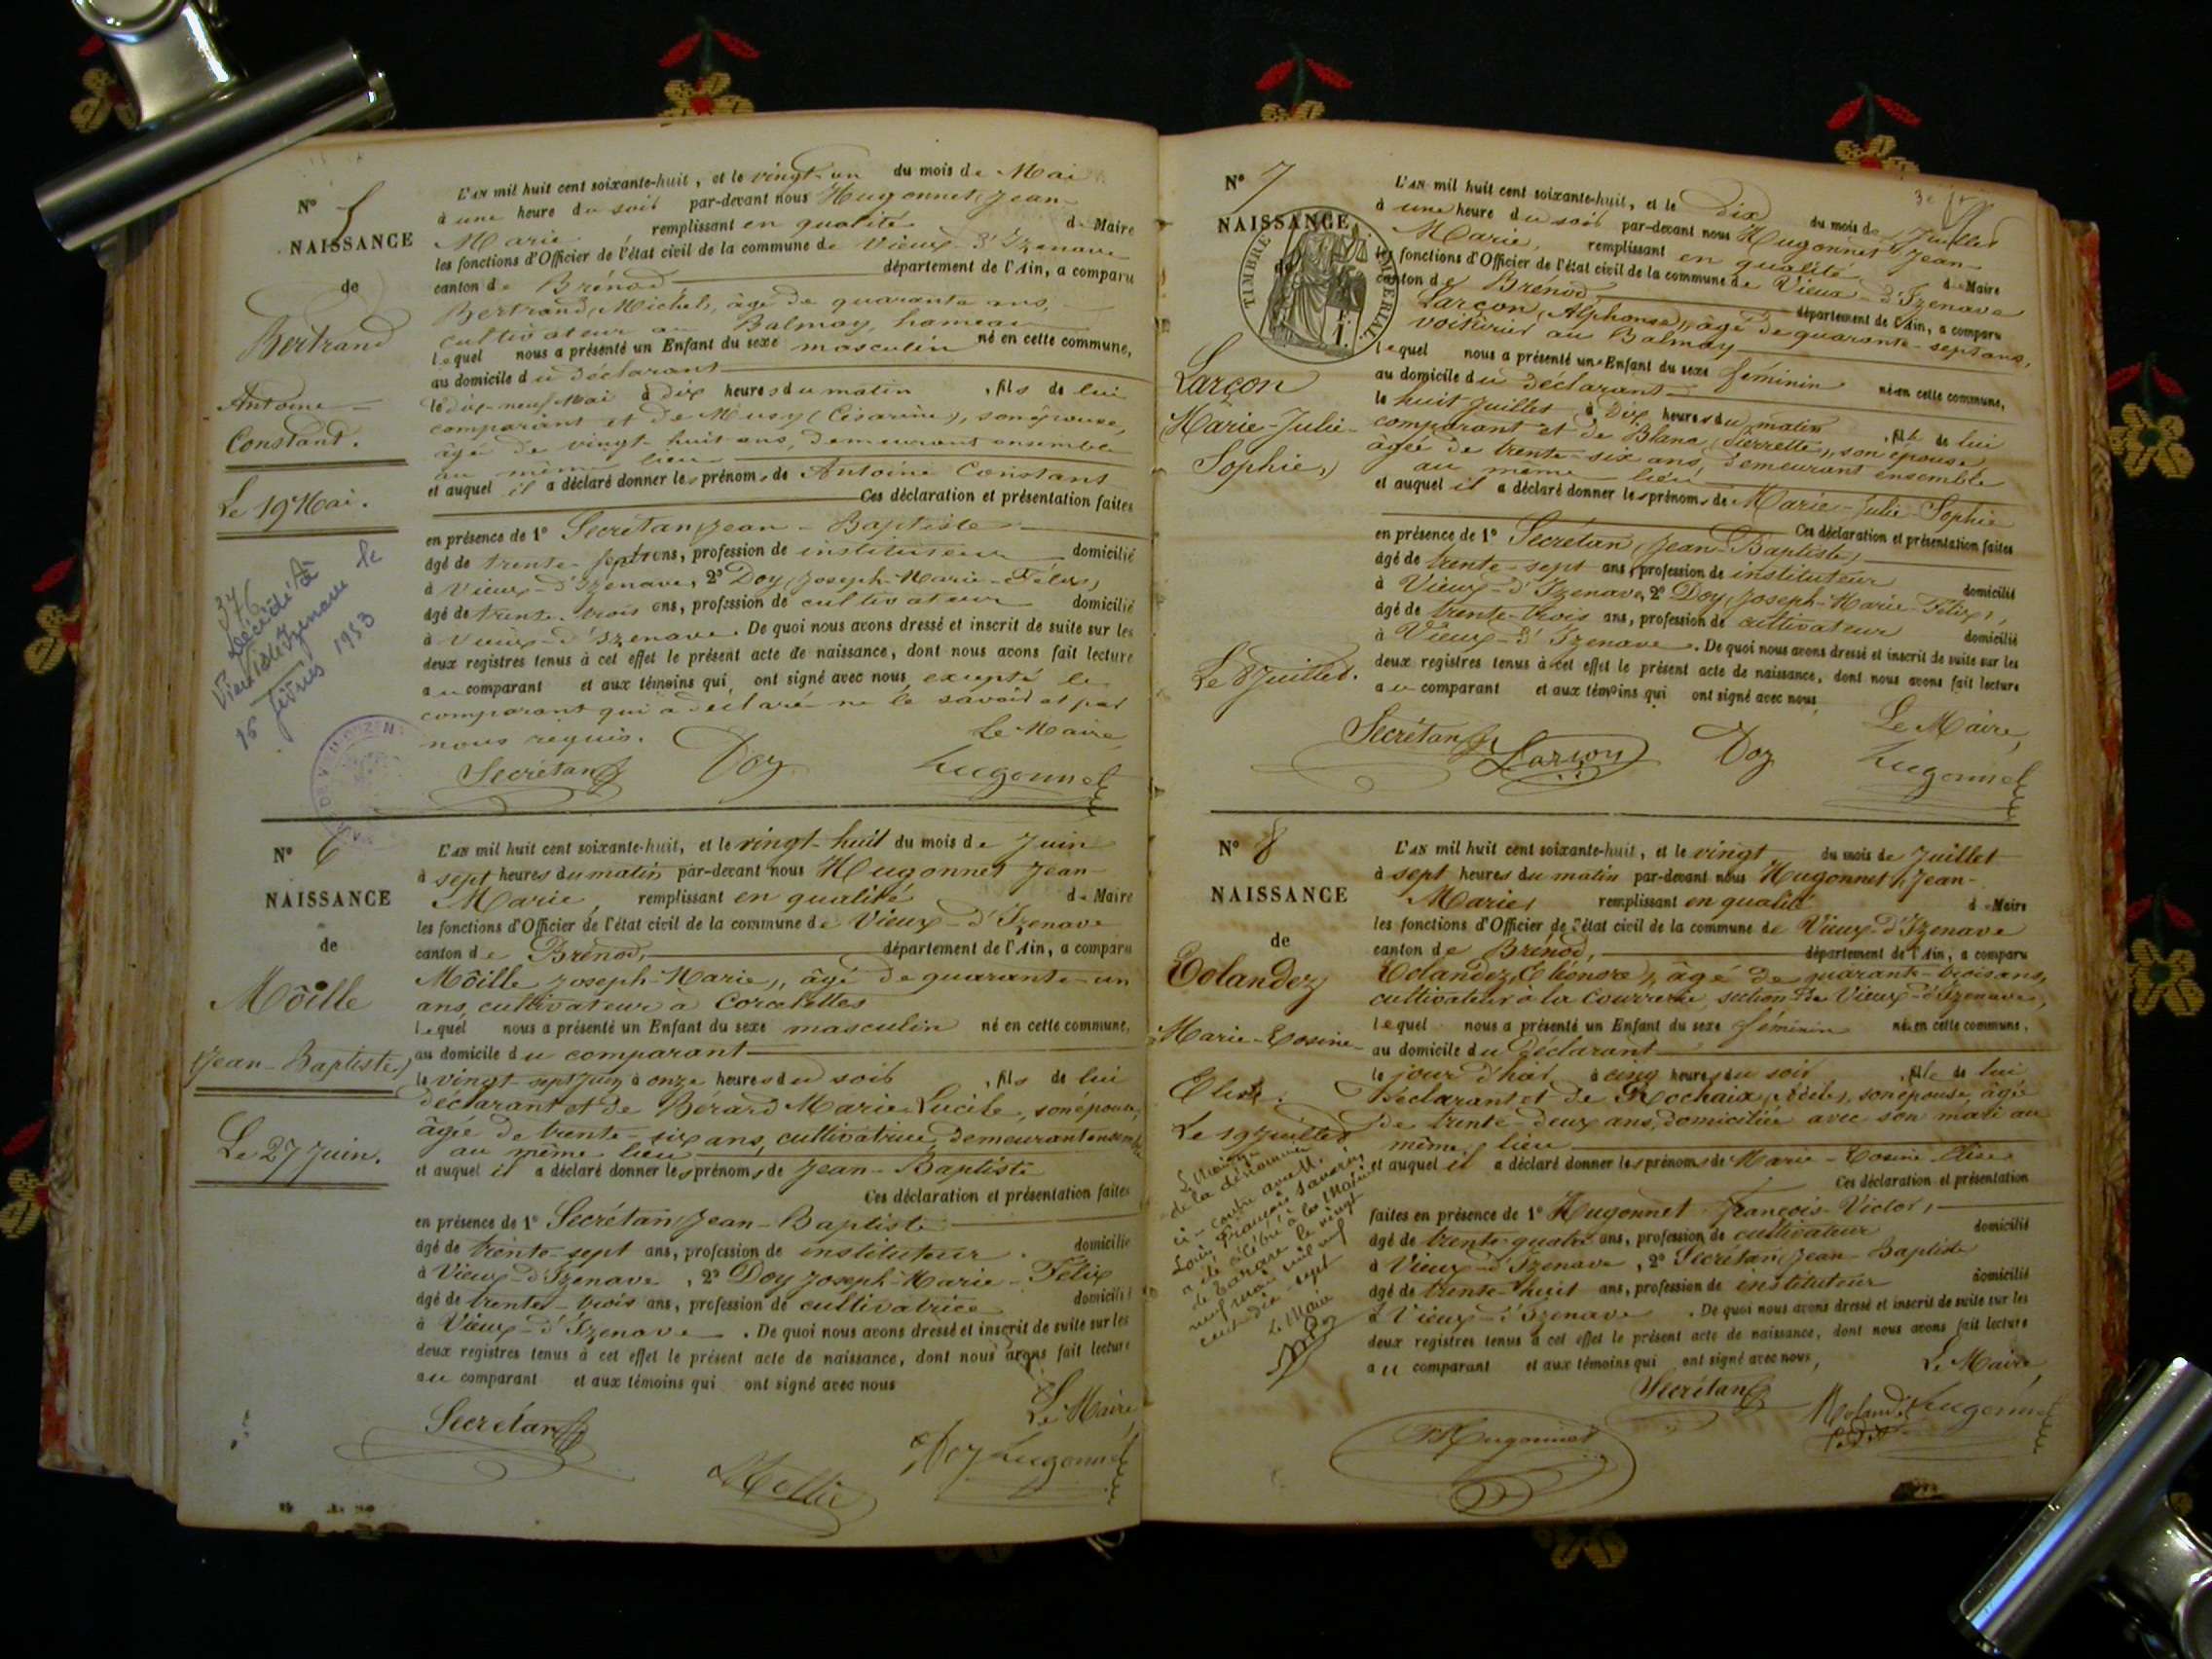 N° 5
NAISSANCE
de
Bertrand
Antoine
Constant.
Le 19 Mai.
376
Décédé à
Vieu d'Izenave le
15 février 1953
L'AN mil huit cent soixante-huit, et le vingt-un du mois de Mai
à une heure du soir par-devant nous Hugonnet, Jean-
Marie, remplissant en qualité de Maire
les fonctions d'Officier de l'état civil de la commune de Vieux-d'Izenave
canton de Brénod département de l'Ain, a comparu
Bertrand, Michel, âgé de quarante ans,
cultivateur au Balmay, hameau
lequel nous a présenté un Enfant du sexe masculin né en cette commune,
au domicile du déclarant
le dix-neuf Mai à dix heures du matin, fils de lui
comparant et de Musy (Césarine), son épouse,
âgée de vingt-huit ans, demeurant ensemble
au même lieu
et auquel il a déclaré donner les prénoms de Antoine Constant
Ces déclaration et présentation faites
en présence de 1° Secrétan, Jean-Baptiste
âgé de trente-sept ans, profession de instituteur domicilié
à Vieux-d'Izenave, 2° Doy, Joseph-Marie-Félix,
âgé de trente-trois ans, profession de cultivateur domicilié
à Vieux-d'Izenave. De quoi nous avons dressé et inscrit de suite sur les
deux registres tenus à cet effet le présent acte de naissance, dont nous avons fait lecture
au comparant et aux témoins qui ont signé avec nous, excepté le
comparant qui a déclaré ne le savoir et par
nous requis. Le Maire,
Secrétan Doy Hugonnet
N° 6
NAISSANCE
de
Môille
Jean-Baptiste,
Le 27 Juin.
L'AN mil huit cent soixante-huit, et le vingt-huit du mois de Juin
à sept heures du matin par-devant nous Hugonnet Jean-
Marie, remplissant en qualité de Maire
les fonctions d'Officier de l'état civil de la commune de Vieux-d'Izenave
canton de Brénod, département de l'Ain, a comparu
Môille Joseph-Marie, âgé de quarante-un
ans, cultivateur à Corcelettes
lequel nous a présenté un Enfant du sexe masculin né en cette commune,
au domicile du comparant
le vingt-sept Juin à onze heures du soir, fils de lui
déclarant et de Bérard Marie Lucile, son épouse,
âgée de trente-six ans, cultivatrice, demeurant ensemble
au même lieu
et auquel il a déclaré donner les prénoms de Jean-Baptiste
Ces déclaration et présentation faites
en présence de 1° Secrétan, Jean-Baptiste
âgé de trente-sept ans, profession de instituteur. domicilié
à Vieux-d'Izenave, 2° Doy Joseph-Marie-Félix
âgé de trente-trois ans, profession de cultivatrice domicilié
à Vieux-d'Izenave. De quoi nous avons dressé et inscrit de suite sur les
deux registres tenus à cet effet le présent acte de naissance, dont nous avons fait lecture
au comparant et aux témoins qui ont signé avec nous
Le Maire,
Secrétan Doy Hugonnet
N° 7
NAISSANCE
de
TIMBRE IMPÉRIAL
Larçon
Marie-Julie-
Sophie,
Le 8 Juillet.
L'AN mil huit cent soixante-huit, et le dix du mois de Juillet
à une heure du soir par-devant nous Hugonnet, Jean-
Marie, remplissant en qualité de Maire
les fonctions d'Officier de l'état civil de la commune de Vieux-d'Izenave
canton de Brénod, département de l'Ain, a comparu
Larçon, Alphonse, âgé de quarante-sept ans,
voiturier au Balmay
lequel nous a présenté un Enfant du sexe féminin né en cette commune,
au domicile du déclarant
le huit Juillet à dix heures du matin, fille de lui
comparant et de Blanc Pierrette, son épouse
âgée de trente-six ans, demeurant ensemble
au même lieu
et auquel il a déclaré donner les prénoms de Marie-Julie-Sophie
Ces déclaration et présentation faites
en présence de 1° Secrétan, Jean-Baptiste,
âgé de trente-sept ans, profession de instituteur domicilié
à Vieux-d'Izenave, 2° Doy, Joseph-Marie-Félix,
âgé de trente-trois ans, profession de cultivateur domicilié
à Vieux-d'Izenave. De quoi nous avons dressé et inscrit de suite sur les
deux registres tenus à cet effet le présent acte de naissance, dont nous avons fait lecture
au comparant et aux témoins qui ont signé avec nous
Le Maire,
Secrétan Larçon Doy Hugonnet
N° 8
NAISSANCE
de
Rolandez
Marie-Rosine-
Elise.
Le 19 Juillet
Le Mariage
de la dénommée
ci-contre avec M.
Louis François
a été célébré à la Mairie
de Tarare le vingt
neuf mai mil neuf
cent dix-sept
Le Maire
Doy
L'AN mil huit cent soixante-huit, et le vingt du mois de Juillet
à sept heures du matin par-devant nous Hugonnet, Jean-
Marie, remplissant en qualité de Maire
les fonctions d'Officier de l'état civil de la commune de Vieux-d'Izenave
canton de Brénod, département de l'Ain, a comparu
Rolandez, âgé de quarante-trois ans,
cultivateur à la Courrerie, section de Vieux-d'Izenave,
lequel nous a présenté un Enfant du sexe féminin né en cette commune,
au domicile du déclarant
le jour d'hier à cinq heures du soir, fille de lui
déclarant et de Rochaix, son épouse, âgée
de trente-deux ans, domiciliée avec son mari au
même lieu
et auquel il a déclaré donner les prénoms de Marie-Rosine Elise
Ces déclaration et présentation
faites en présence de 1° Hugonnet François-Victor,
âgé de trente-quatre ans, profession de cultivateur domicilié
à Vieux-d'Izenave, 2° Secrétan, Jean-Baptiste
âgé de trente-huit ans, profession de instituteur domicilié
à Vieux-d'Izenave. De quoi nous avons dressé et inscrit de suite sur les
deux registres tenus à cet effet le présent acte de naissance, dont nous avons fait lecture
au comparant et aux témoins qui ont signé avec nous,
Le Maire,
Secrétan Hugonnet
Hugonnet